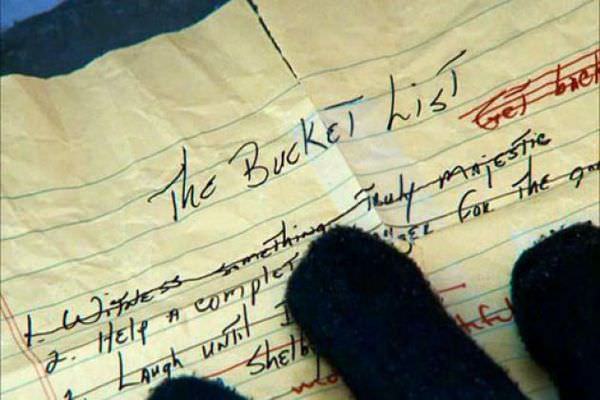 The Bucket List
Get back
1. Witness something Truly majestic
2. Help a complet ger for the
Laugh until I
Shelb